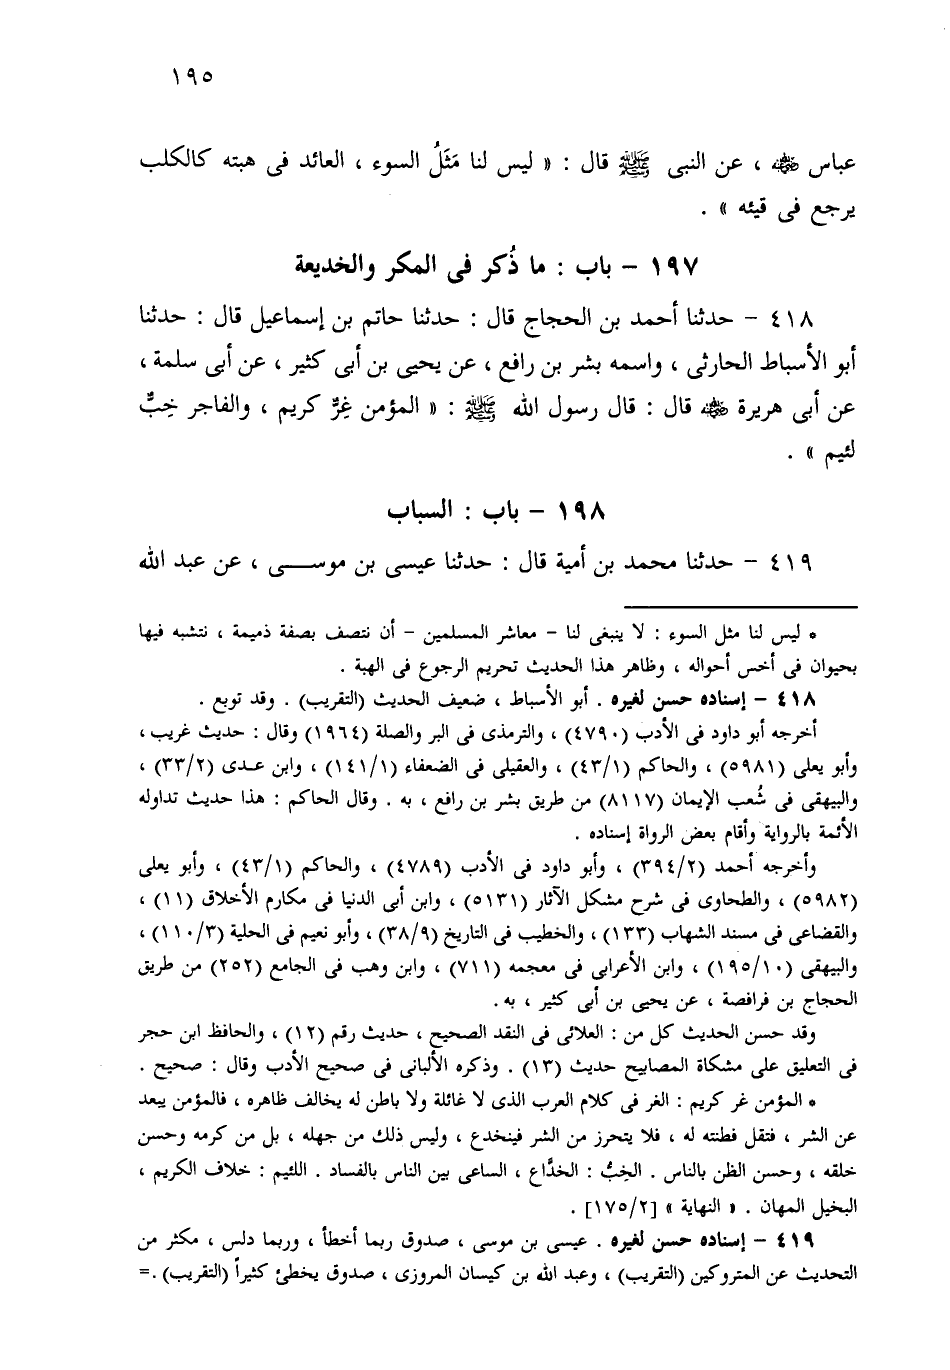 ١٩٥
عباس رضي الله عنه ، عن النبى ﷺ قال : « ليس لنا مَثَلُ السوء ، العائد فى هبته كالكلب
يرجع فى قيئه » .
١٩٧ – باب : ما ذُكر فى المكر والخديعة
٤١٨ – حدثنا أحمد بن الحجاج قال : حدثنا حاتم بن إسماعيل قال : حدثنا
أبو الأسباط الحارثى ، واسمه بشر بن رافع ، عن يحيى بن أبى كثير ، عن أبى سلمة ،
عن أبى هريرة رضي الله عنه قال : قال رسول الله ﷺ : « المؤمن غِرٌّ كريم ، والفاجر خِبٌّ
لئيم » .
١٩٨ – باب : السباب
٤١٩ – حدثنا محمد بن أمية قال : حدثنا عيسى بن موســـى ، عن عبد الله
* ليس لنا مثل السوء : لا ينبغى لنا – معاشر المسلمين – أن نتصف بصفة ذميمة ، نتشبه فيها
بحيوان فى أخس أحواله ، وظاهر هذا الحديث تحريم الرجوع فى الهبة .
٤١٨ – إسناده حسن لغيره . أبو الأسباط ، ضعيف الحديث (التقريب) . وقد توبع .
أخرجه أبو داود فى الأدب (٤٧٩٠) ، والترمذى فى البر والصلة (١٩٦٤) وقال : حديث غريب ،
وأبو يعلى (٥٩٨١) ، والحاكم (٤٣/١) ، والعقيلى فى الضعفاء (١٤١/١) ، وابن عـدى (٣٣/٢) ،
والبيهقى فى شُعب الإيمان (٨١١٧) من طريق بشر بن رافع ، به . وقال الحاكم : هذا حديث تداوله
الأئمة بالرواية وأقام بعض الرواة إسناده .
وأخرجه أحمد (٣٩٤/٢) ، وأبو داود فى الأدب (٤٧٨٩) ، والحاكم (٤٣/١) ، وأبو يعلى
(٥٩٨٢) ، والطحاوى فى شرح مشكل الآثار (٥١٣١) ، وابن أبى الدنيا فى مكارم الأخلاق (١١) ،
والقضاعى فى مسند الشهاب (١٣٣) ، والخطيب فى التاريخ (٣٨/٩) ، وأبو نعيم فى الحلية (١١٠/٣) ،
والبيهقى (١٩٥/١٠) ، وابن الأعرابى فى معجمه (٧١١) ، وابن وهب فى الجامع (٢٥٢) من طريق
الحجاج بن فرافصة ، عن يحيى بن أبى كثير ، به .
وقد حسن الحديث كل من : العلائى فى النقد الصحيح ، حديث رقم (١٢) ، والحافظ ابن حجر
فى التعليق على مشكاة المصابيح حديث (١٣) . وذكره الألبانى فى صحيح الأدب وقال : صحيح .
* المؤمن غر كريم : الغر فى كلام العرب الذى لا غائلة ولا باطن له يخالف ظاهره ، فالمؤمن يبعد
عن الشر ، فتقل فطنته له ، فلا يتحرز من الشر فينخدع ، وليس ذلك من جهله ، بل من كرمه وحسن
خلقه ، وحسن الظن بالناس . الخِبُّ : الخدَّاع ، الساعى بين الناس بالفساد . اللئيم : خلاف الكريم ،
البخيل المهان . « النهاية » [١٧٥/٢] .
٤١٩ – إسناده حسن لغيره . عيسى بن موسى ، صدوق ربما أخطأ ، وربما دلس ، مكثر من
التحديث عن المتروكين (التقريب) ، وعبد الله بن كيسان المروزى ، صدوق يخطئ كثيراً (التقريب) .=